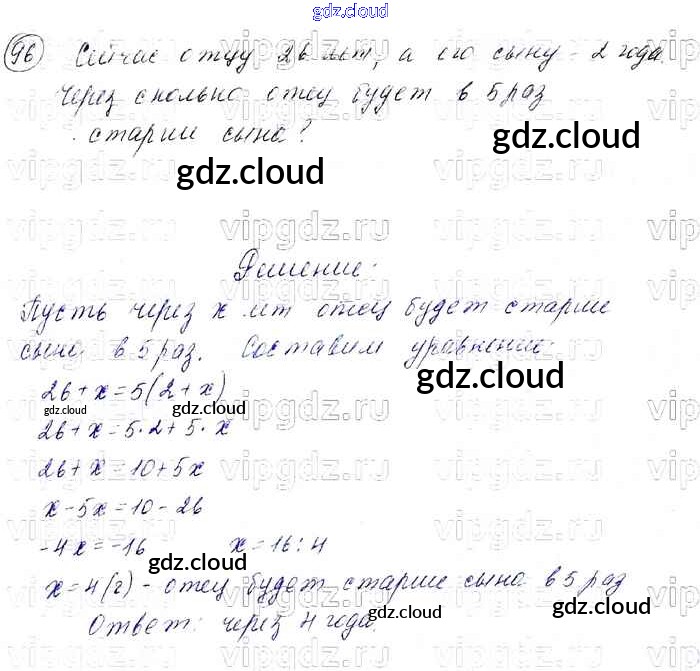 gdz.cloud
96 Сейчас отцу 26 лет, а его сыну - 2 года.
Через сколько отец будет в 5 раз
старше сына?
gdz.cloud
gdz.cloud
vipgdz.ru vipgdz.ru vipgdz.ru
Решение:
Пусть через x лет отец будет старше
сына в 5 раз. Составим уравнение:
26+x=5(2+x)
gdz.cloud
gdz.cloud gdz.cloud
26+x=5·2+5·x
26+x=10+5x
x-5x=10-26
-4x=-16 x=16:4
gdz.cloud
x=4(г) - отец будет старше сына в 5 раз
gdz.cloud gdz.cloud
Ответ: через 4 года.